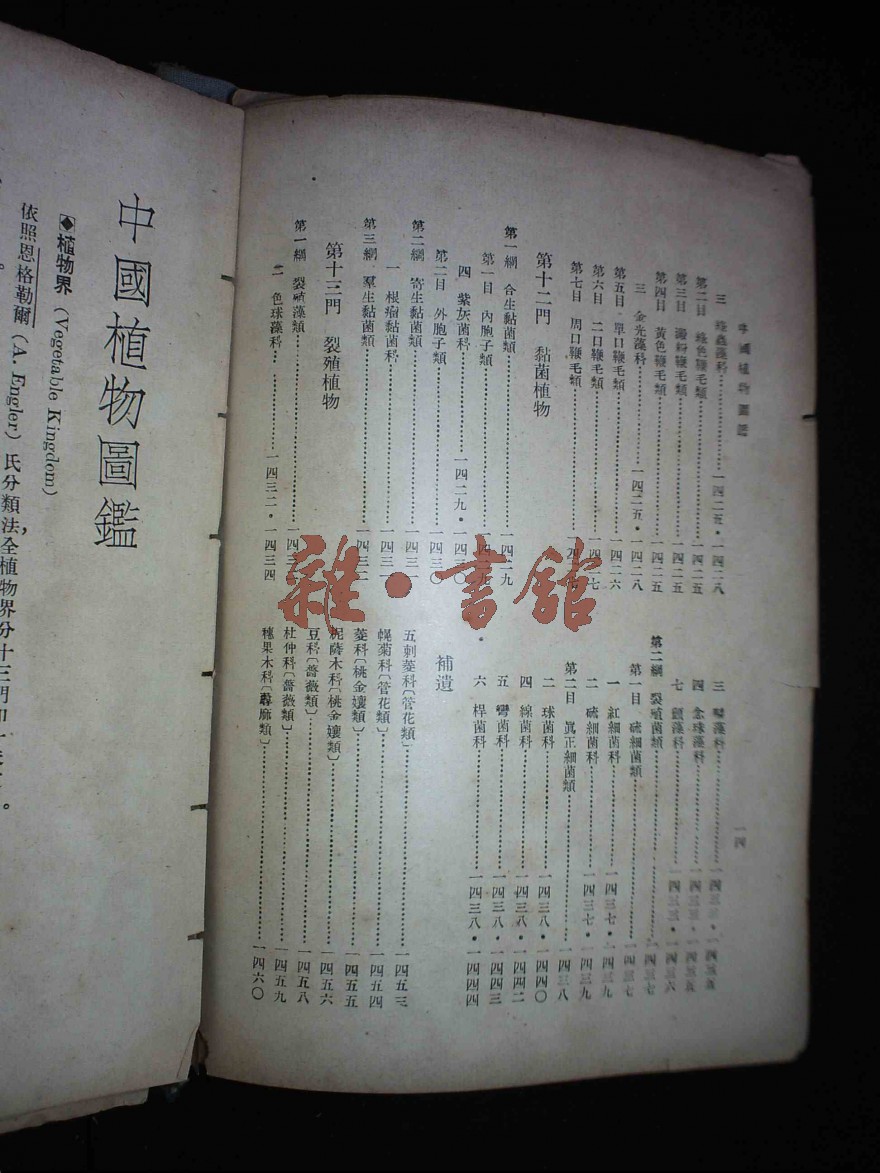 中國植物圖鑑
一四
三 綠蟲藻科 一四二五・一四二八
第二目 綠色鞭毛類 一四二五
第三目 鞭毛類 一四二五
第四目 黃色鞭毛類 一四二五
三 金光藻科 一四二五・一四二八
第五目 單口鞭毛類 一四二六
第六目 二口鞭毛類 一四二七
第七目 周口鞭毛類 一四二七
第十二門 黏菌植物
第一綱 合生黏菌類 一四二九
第一目 內胞子類 一四二九
四 紫灰菌科 一四二九・一四三〇
第二目 外胞子類 一四三〇
第二綱 寄生黏菌類 一四三一
一 根瘤黏菌科 一四三一
第三綱 羣生黏菌類 一四三二
第十三門 裂殖植物
第一綱 裂殖藻類 一四三
二 色球藻科 一四三二・一四三四
三 藻科 一四三三・一四三五
四 念珠藻科 一四三三・一四三五
七 顫藻科 一四三三・一四三六
第二綱 裂殖菌類 一四三七
第一目 硫細菌類 一四三七
一 紅細菌科 一四三七・一四三九
二 硫細菌科 一四三七・一四三九
第二目 眞正細菌類 一四三八
二 球菌科 一四三八・一四四〇
四 線菌科 一四三八・一四四二
五 彎菌科 一四三八・一四四三
六 桿菌科 一四三八・一四四四
補遺
五刺菱科〔管花類〕 一四五三
幌菊科〔管花類〕 一四五四
菱科〔桃金孃類〕 一四五五
柅薩木科〔桃金孃類〕 一四五六
豆科〔薔薇類〕 一四五八
杜仲科〔薔薇類〕 一四五九
穗果木科〔蕁麻類〕 一四六〇
中國植物圖鑑
植物界 (Vegetable Kingdom)
依照恩格勒爾 (A. Engler) 氏分類法,全植物界分十三門卽
雜・書館